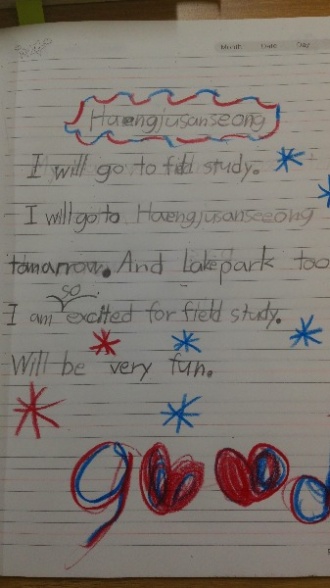 Month Date Day
Haengjusanseong
I will go to field study.
I will go to Haengjusanseeong
tomarrow. And Lake park too
so
I am excited for field study.
Will be very fun.
good